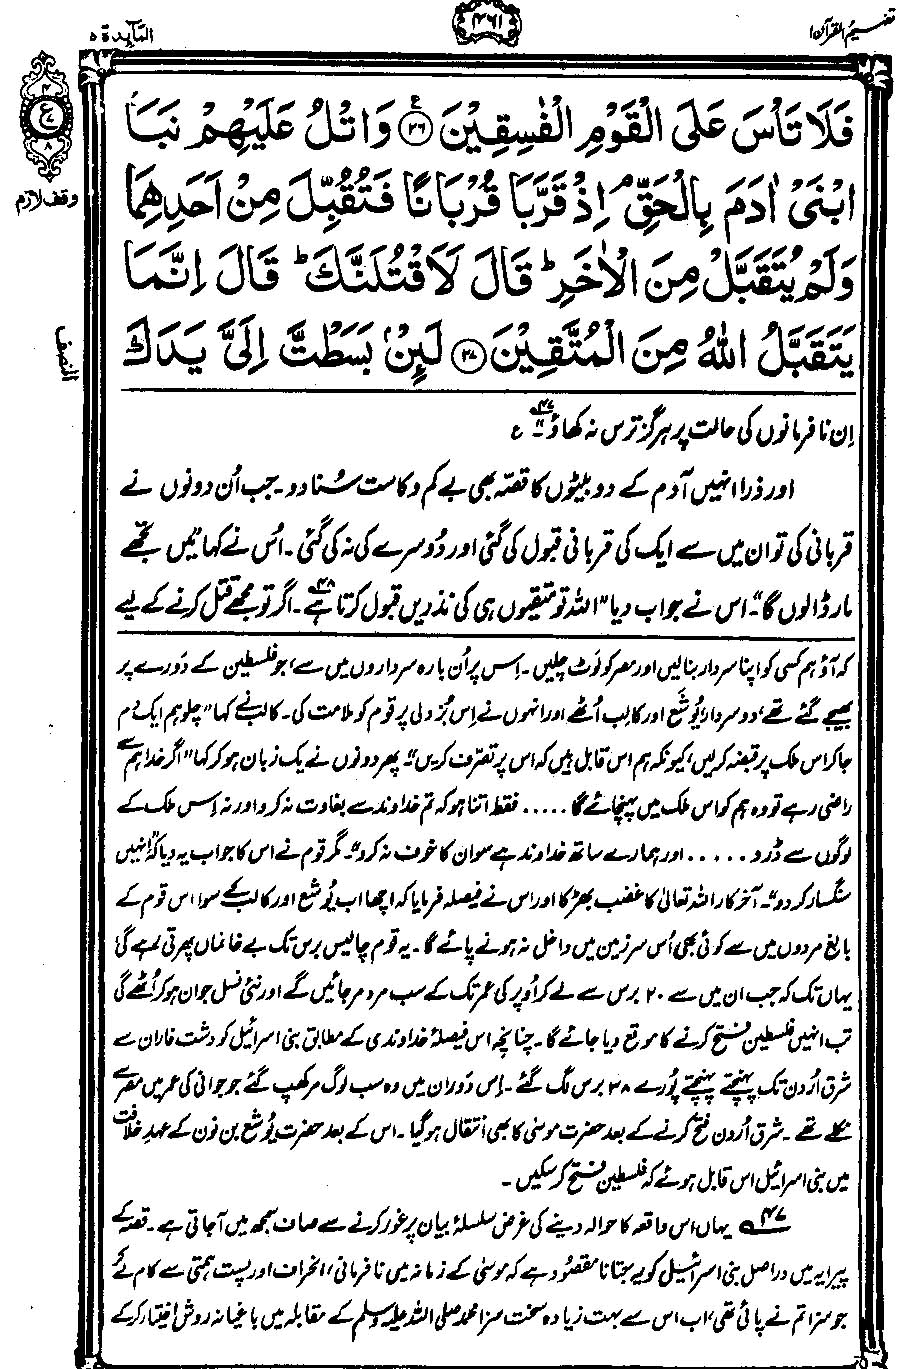 تفہیم القرآن ۱
۴۶۱
المآئدۃ ۵
فَلَا تَاْسَ عَلَى الْقَوْمِ الْفٰسِقِیْنَ ﴿۲۶﴾ وَاتْلُ عَلَیْهِمْ نَبَاَ
ابْنَیْ اٰدَمَ بِالْحَقِّ ۘ اِذْ قَرَّبَا قُرْبَانًا فَتُقُبِّلَ مِنْ اَحَدِهِمَا
وَلَمْ یُتَقَبَّلْ مِنَ الْاٰخَرِ ؕ قَالَ لَاَقْتُلَنَّكَ ؕ قَالَ اِنَّمَا
یَتَقَبَّلُ اللّٰهُ مِنَ الْمُتَّقِیْنَ ﴿۲۷﴾ لَئِنْۢ بَسَطْتَّ اِلَیَّ یَدَكَ
۴
ع
۷
۸
وقف لازم
النصف
اِن نافرمانوں کی حالت پر ہرگز ترس نہ کھاؤ ۴۷؎" ع
اور ذرا انہیں آدم کے دو بیٹوں کا قصّہ بھی بے کم و کاست سُنا دو۔ جب اُن دونوں نے
قربانی کی تو ان میں سے ایک کی قربانی قبول کی گئی اور دُوسرے کی نہ کی گئی۔ اُس نے کہا "میں تجھے
مار ڈالوں گا"۔ اس نے جواب دیا "اللہ تو متقیوں ہی کی نذریں قبول کرتا ہے ۴۸؎۔ اگر تو مجھے قتل کرنے کے لیے
کہ آؤ ہم کسی کو اپنا سردار بنا لیں اور مصر کو لوٹ چلیں۔ اِس پر اُن بارہ سرداروں میں سے، جو فلسطین کے دَورے پر
بھیجے گئے تھے، دو سردار، یُوشَع اور کالب اُٹھے اور انہوں نے اِس بُزدلی پر قوم کو ملامت کی۔ کالب نے کہا "چلو ہم ایک دَم
جا کر اس ملک پر قبضہ کر لیں، کیونکہ ہم اس قابل ہیں کہ اس پر تصرّف کریں"۔ پھر دونوں نے یک زبان ہو کر کہا "اگر خدا ہم سے
راضی رہے تو وہ ہم کو اس ملک میں پہنچائے گا ..... فقط اتنا ہو کہ تم خداوند سے بغاوت نہ کرو اور نہ اِس ملک کے
لوگوں سے ڈرو ..... اور ہمارے ساتھ خداوند ہے سو ان کا خوف نہ کرو"۔ مگر قوم نے اس کا جواب یہ دیا کہ "انہیں
سنگسار کر دو"۔ آخر کار اللہ تعالیٰ کا غضب بھڑکا اور اس نے فیصلہ فرمایا کہ اچھا اب یُوشع اور کالب کے سوا اس قوم کے
بالغ مردوں میں سے کوئی بھی اُس سرزمین میں داخل نہ ہونے پائے گا۔ یہ قوم چالیس برس تک بے خانماں پھرتی رہے گی
یہاں تک کہ جب ان میں سے ۲۰ برس سے لے کر اُوپر کی عمر تک کے سب مرد مر جائیں گے اور نئی نسل جوان ہو کر اُٹھے گی
تب انہیں فلسطین فتح کرنے کا موقع دیا جائے گا۔ چنانچہ اس فیصلۂ خداوندی کے مطابق بنی اسرائیل کو دشت فاران سے
شرق اُردن تک پہنچتے پہنچتے پُورے ۳۸ برس لگ گئے۔ اِس دَوران میں وہ سب لوگ مر کھپ گئے جو جوانی کی عمر میں مصر سے
نکلے تھے۔ شرق اُردن فتح کرنے کے بعد حضرت موسیٰ کا بھی انتقال ہو گیا۔ اس کے بعد حضرت یُوشَع بن نون کے عہدِ خلافت
میں بنی اسرائیل اس قابل ہوئے کہ فلسطین فتح کر سکیں۔
۴۷؎ یہاں اس واقعہ کا حوالہ دینے کی غرض سلسلۂ بیان پر غور کرنے سے صاف سمجھ میں آجاتی ہے۔ قصّہ کے
پیرایہ میں دراصل بنی اسرائیل کو یہ جتانا مقصُود ہے کہ موسیٰ کے زمانہ میں نافرمانی، انحراف اور پست ہمتی سے کام لے کر
جو سزا تم نے پائی تھی، اب اس سے بہت زیادہ سخت سزا محمد صلی اللہ علیہ وسلم کے مقابلہ میں باغیانہ روش اختیار کر کے